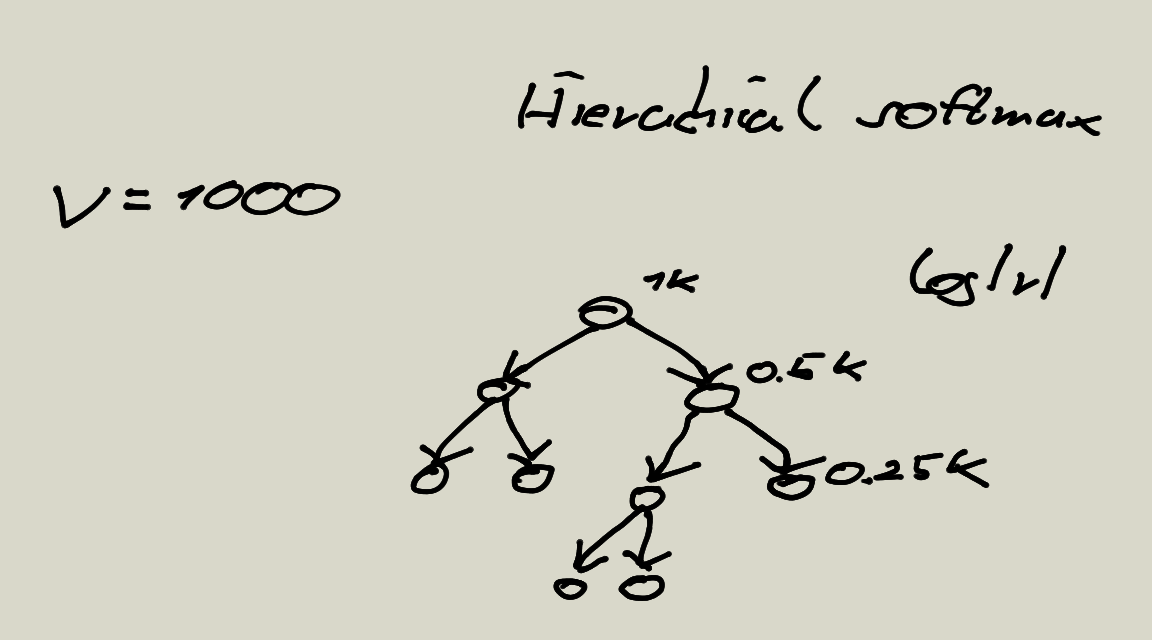 Hierachial softmax
V = 1000
log|v|
1K
0.5K
0.25K